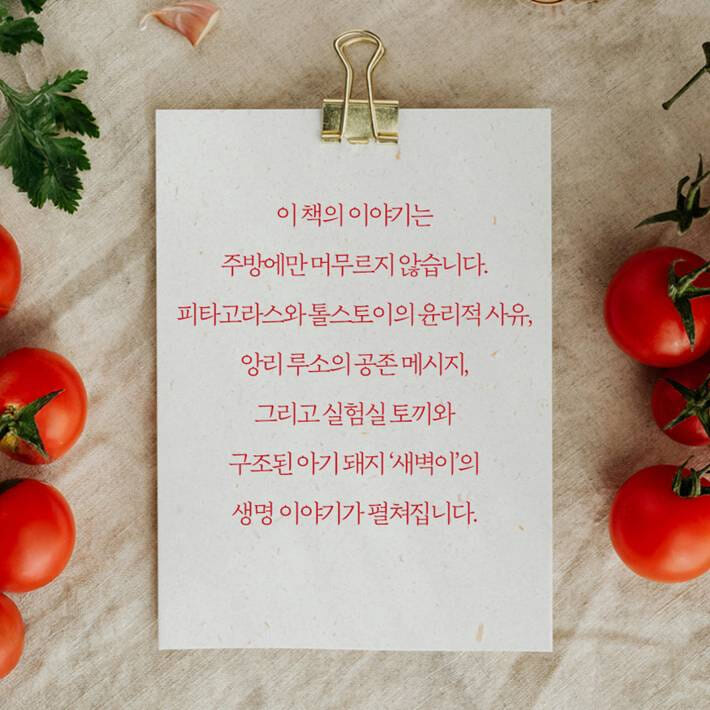 이 책의 이야기는
주방에만 머무르지 않습니다.
피타고라스와 톨스토이의 윤리적 사유,
앙리 루소의 공존 메시지,
그리고 실험실 토끼와
구조된 아기 돼지 ‘새벽이’의
생명 이야기가 펼쳐집니다.